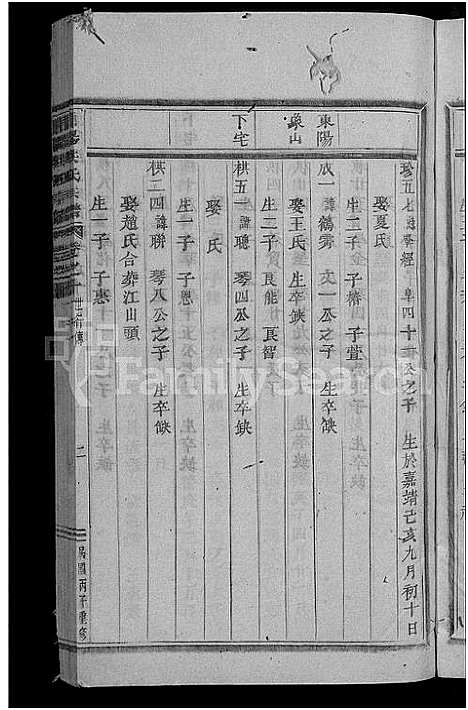 珍五七諱學經 阜四十五公之子 生於嘉靖己亥九月初十日
娶夏氏
生二子 椿 子萱
東陽
象山
成一諱鶴霄 文一公之子 生卒缺
娶王氏 生卒缺
生二子 良能 良智
下宅
棋五一諱聰 琴四公之子 生卒缺
娶 氏
生一子 子恩
棋二四諱聯 琴八公之子 生卒缺
娶趙氏合葬江山頭
生一子 子惠
民國丙子重修
FamilySearch